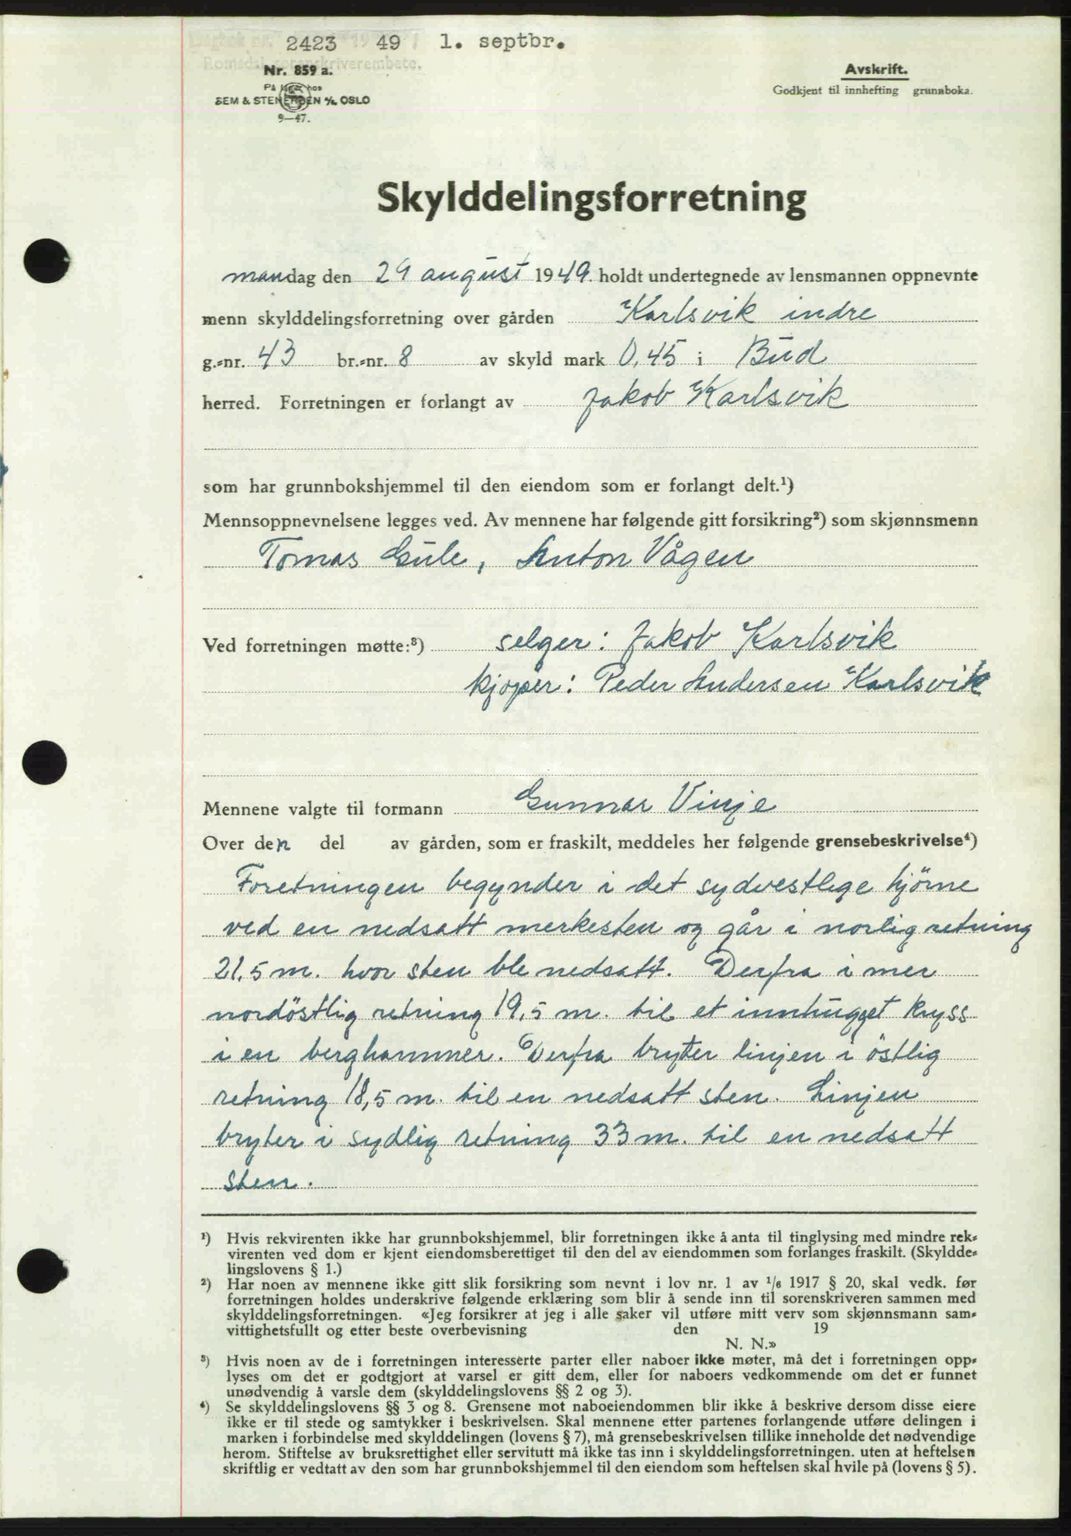 2423 49 1. septbr.
Romsdal sorenskriverembete.
Nr. 859 a.
På lager hos
SEM & STENERSEN A/S, OSLO
9—47.
Avskrift.
Godkjent til innhefting grunnboka.
Skylddelingsforretning
mandag den 29 august 1949. holdt undertegnede av lensmannen oppnevnte
menn skylddelingsforretning over gården Karlsvik indre
g.-nr. 43 br.-nr. 8 av skyld mark 0,45 i Bud
herred. Forretningen er forlangt av Jakob Karlsvik
som har grunnbokshjemmel til den eiendom som er forlangt delt.¹)
Mennsoppnevnelsene legges ved. Av mennene har følgende gitt forsikring²) som skjønnsmenn
Tomas Gule, Anton Vågen
Ved forretningen møtte:³) selger: Jakob Karlsvik
kjøper: Peder Andersen Karlsvik
Mennene valgte til formann Gunnar Vinje
Over den del av gården, som er fraskilt, meddeles her følgende grensebeskrivelse⁴)
Foretningen begynder i det sydvestlige hjörne
ved en nedsatt merkesten og går i norlig retning
21,5 m. hvor sten ble nedsatt. Derfra i mer
nordöstlig retning 19,5 m. til et innhugget kryss
i en berghammer. Derfra bryter linjen i östlig
retning 18,5 m. til en nedsatt sten. Linjen
bryter i sydlig retning 33 m. til en nedsatt
sten.
¹) Hvis rekvirenten ikke har grunnbokshjemmel, blir forretningen ikke å anta til tinglysing med mindre rek-
virenten ved dom er kjent eiendomsberettiget til den del av eiendommen som forlanges fraskilt. (Skyldde-
lingslovens § 1.)
²) Har noen av mennene ikke gitt slik forsikring som nevnt i lov nr. 1 av ¹/₆ 1917 § 20, skal vedk. før
forretningen holdes underskrive følgende erklæring som blir å sende inn til sorenskriveren sammen med
skylddelingsforretningen. «Jeg forsikrer at jeg i alle saker vil utføre mitt verv som skjønnsmann sam-
vittighetsfullt og etter beste overbevisning den 19
N. N.»
³) Hvis noen av de i forretningen interesserte parter eller naboer ikke møter, må det i forretningen opp-
lyses om det er godtgjort at varsel er gitt dem, eller for naboers vedkommende om det er funnet
unødvendig å varsle dem (skylddelingslovens §§ 2 og 3).
⁴) Se skylddelingslovens §§ 3 og 8. Grensene mot naboeiendommen blir ikke å beskrive dersom disse eiere
ikke er til stede og samtykker i beskrivelsen. Skal mennene etter partenes forlangende utføre delingen i
marken i forbindelse med skylddelingen (lovens § 7), må grensebeskrivelsen tillike inneholde det nødvendige
herom. Stiftelse av bruksrettighet eller servitutt må ikke tas inn i skylddelingsforretningen. uten at heftelsen
skriftlig er vedtatt av den som har grunnbokshjemmel til den eiendom som heftelsen skal hvile på (lovens § 5).